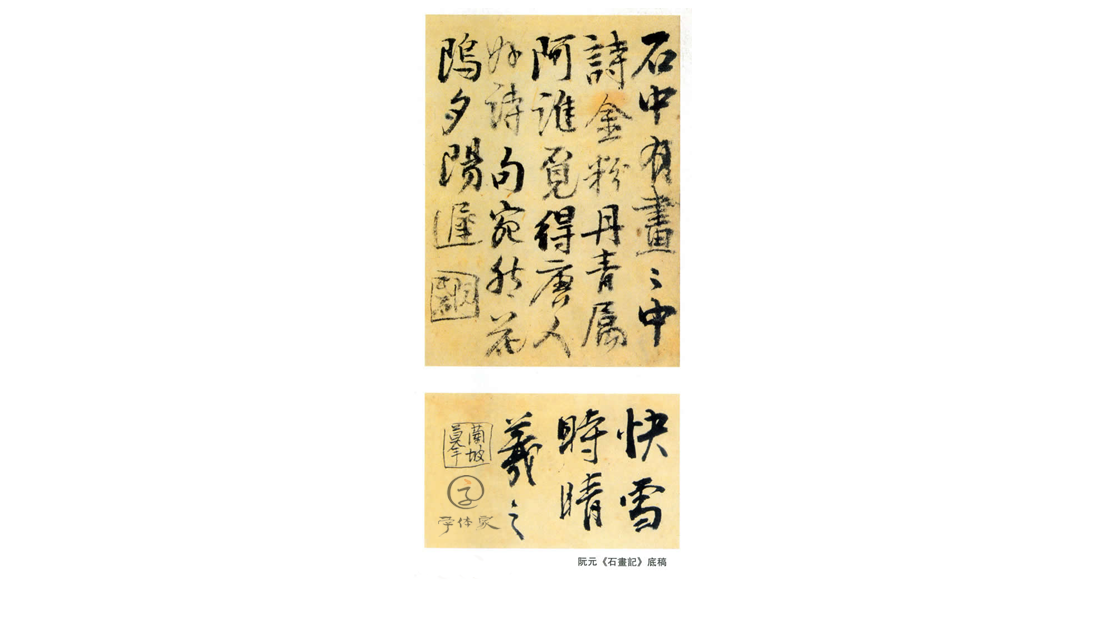 石中有畫〻中
詩金粉丹青属
阿誰覓得唐人
好诗句宛然花
隖夕陽遲
快雪
時晴
羲之
蘭坡
字体家
阮元《石畫記》底稿